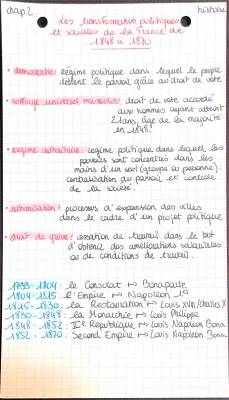 chap 2
histoire
les transformation politiques
et sociales de la France de
1848 à 1870
• démocratie: Régime politique dans lequel le peuple
détient le pouvoir grâce au droit de vote
• suffrage universel masculin: droit de vote accordé
aux hommes ayant atteint
21ans, âge de la majorité
en 1848.
• régime autoritaire: régime politique dans lequel les
pouvoirs sont concentrés dans les
mains d'un seul (groupe ou personne):
centralisation du pouvoir et contrôle
de la société.
• urbanisation: processus d'expansion des villes
dans le cadre d'un projet politique
• droit de grève: cessation de travail dans le but
d'obtenir des améliorations salariales
ou de conditions de travail.
1799-1804: le Consulat ↦ Bonaparte
1804-1815: l'Empire ↦ Napoléon 1er
1815-1830: la Restauration ↦ Louis XVIII/Charles X
1830-1848: la Monarchie ↦ Louis Philippe
1848-1852: IIe République ↦ Louis Napoléon Bona
1852-1870: Second Empire ↦ Louis Napoléon Bona